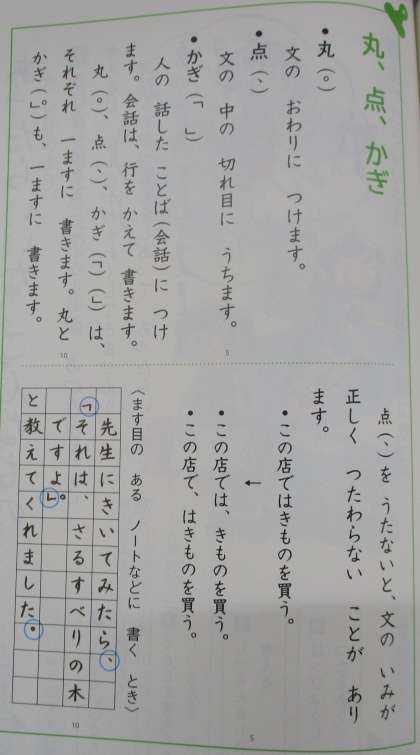 丸、点、かぎ
●丸(。)
文の おわりに つけます。
●点(、)
文の 中の 切れ目に うちます。
●かぎ(「 」)
人の 話した ことば(会話)に つけ
ます。会話は、行を かえて 書きます。
丸(。)、点(、)、かぎ(「)(」)は、
それぞれ 一ますに 書きます。丸と
かぎ(。」)も、一ますに 書きます。
5
10
点(、)を うたないと、文の いみが
正しく つたわらない ことが あり
ます。
●この店ではきものを買う。
←
●この店では、きものを買う。
●この店で、はきものを買う。
〈ます目の ある ノートなどに 書く とき〉
先生にきいてみたら、
「それは、さるすべりの木
ですよ。」
と教えてくれました。
5
10